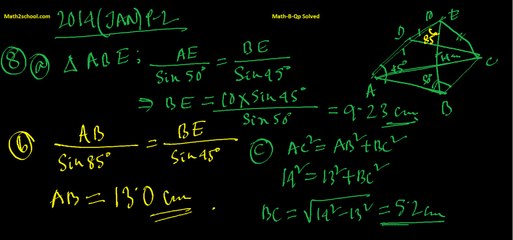 Math2school.com
Math-B-Qp Solved
2014 (JAN) P-2
⑧ ⓐ △ ABE; AE / Sin50° = BE / Sin45°
⇒ BE = 10 × Sin45° / Sin50° = 9.23 cm
ⓑ AB / Sin85° = BE / Sin45°
AB = 13.0 cm
ⓒ AC² = AB² + BC²
14² = 13² + BC²
BC = √14² - 13² = 5.2 cm
D
E
85°
C
45°
A
B